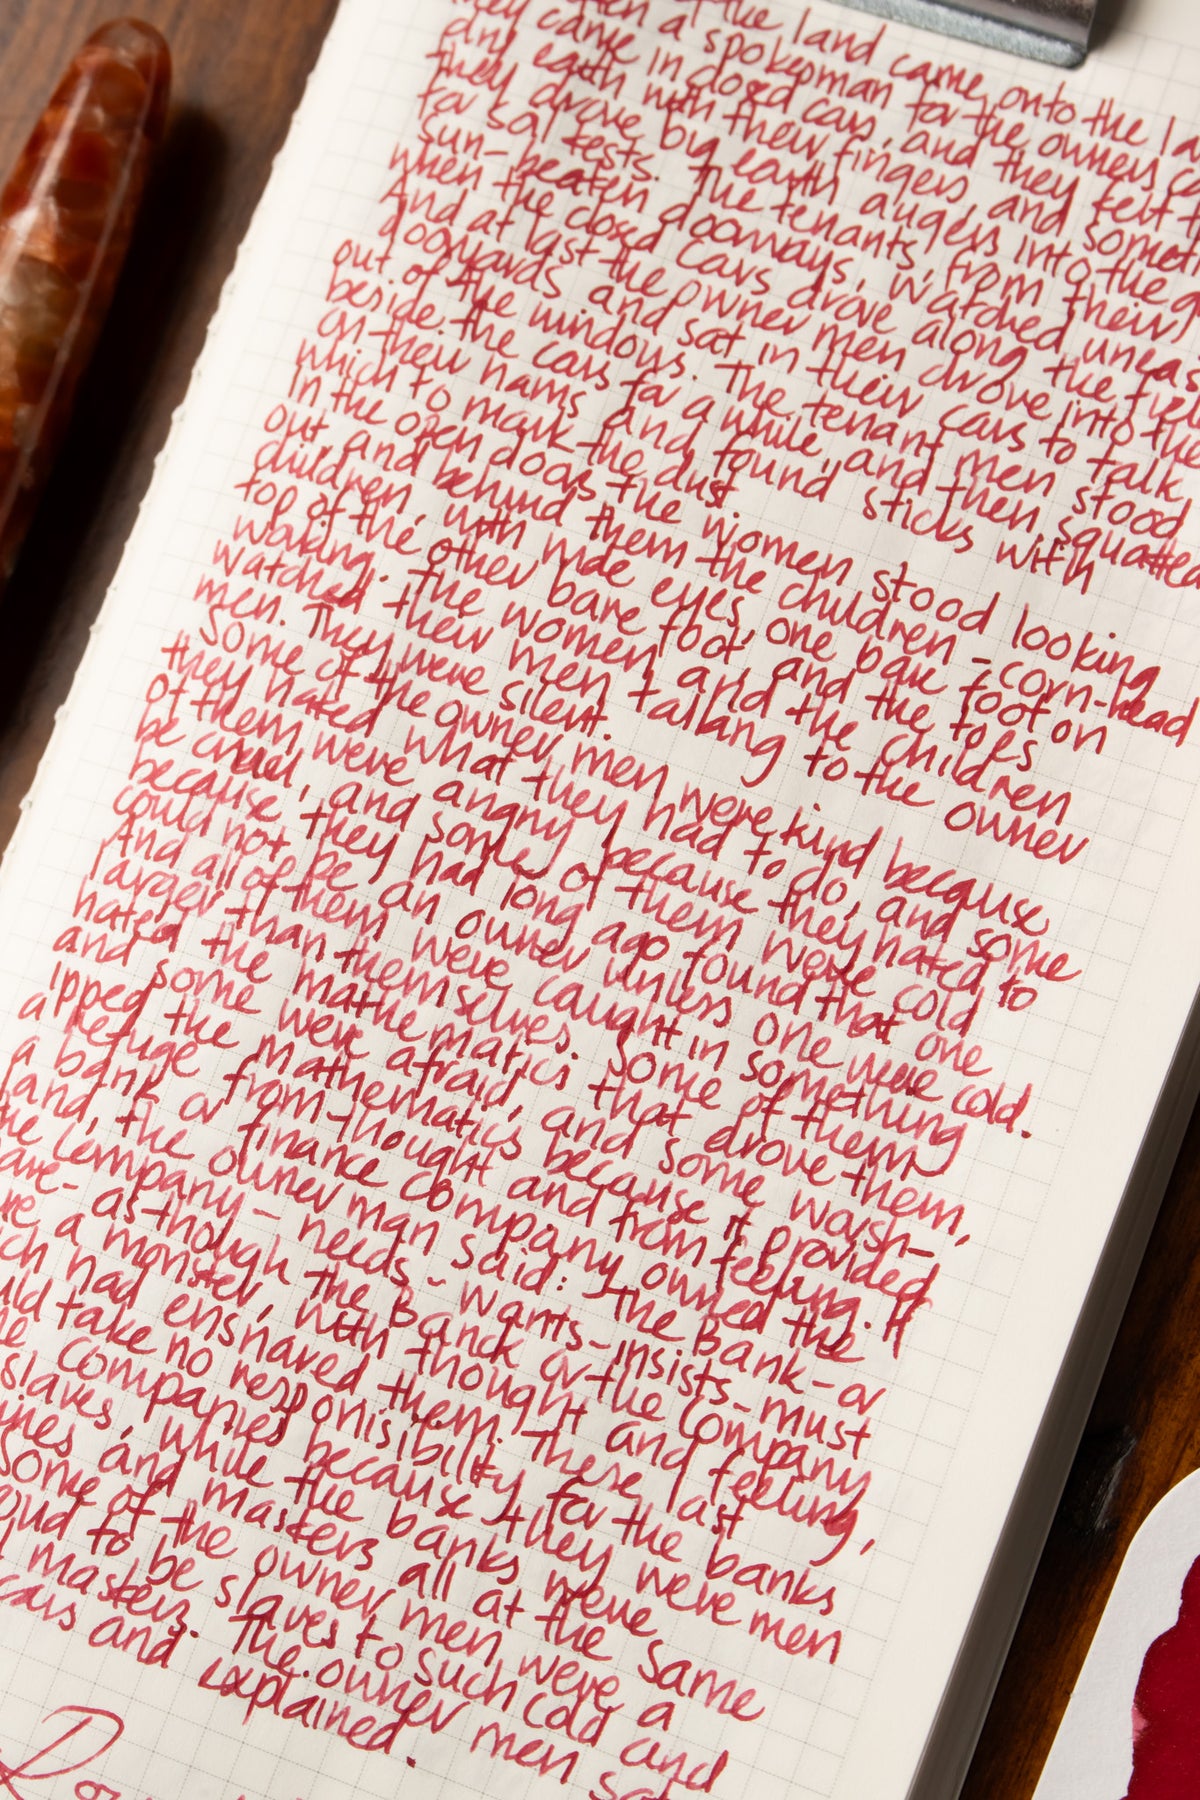 of the land came onto the
a spokesman for the owners
They came in closed cars, and they felt
dry earth with their fingers, and
they drove big earth augers into the
for soil tests. The tenants, from their
sun-beaten doorways, watched uneas
when the closed cars drove along the fiel
And at last the owner men drove into the
dooryards and sat in their cars to talk
out of the windows. The tenant men stood
beside the cars for a while, and then squatted
on their hams and found sticks with
which to mark the dust.
In the open doors the women stood looking
out, and behind them the children - corn-head
children, with wide eyes, one bare foot on
top of the other bare foot, and the toes
working. The women and the children
watched their men talking to the owner
men. They were silent.
Some of the owner men were kind because
they hated what they had to do, and some
of them were angry because they hated to
be cruel, and some of them were cold
because they had long ago found that one
could not be an owner unless one were cold.
And all of them were caught in something
larger than themselves. Some of them
hated the mathematics that drove them,
and some were afraid, and some worsh-
ipped the mathematics because it provided
a refuge from thought and from feeling. If
a bank or finance company owned the
land, the owner man said: The Bank - or
the Company - needs - wants - insists - must
ave - as though the Banck or the Company
re a monster, with thought and feeling,
ch had ensnared them. These last
uld take no responisibility for the banks
companies because they were men
slaves, while the banks were
ines and masters all at the same
Some of the owner men were a
oud to be slaves to such cold and
masters. The owner men sat
cars and explained.